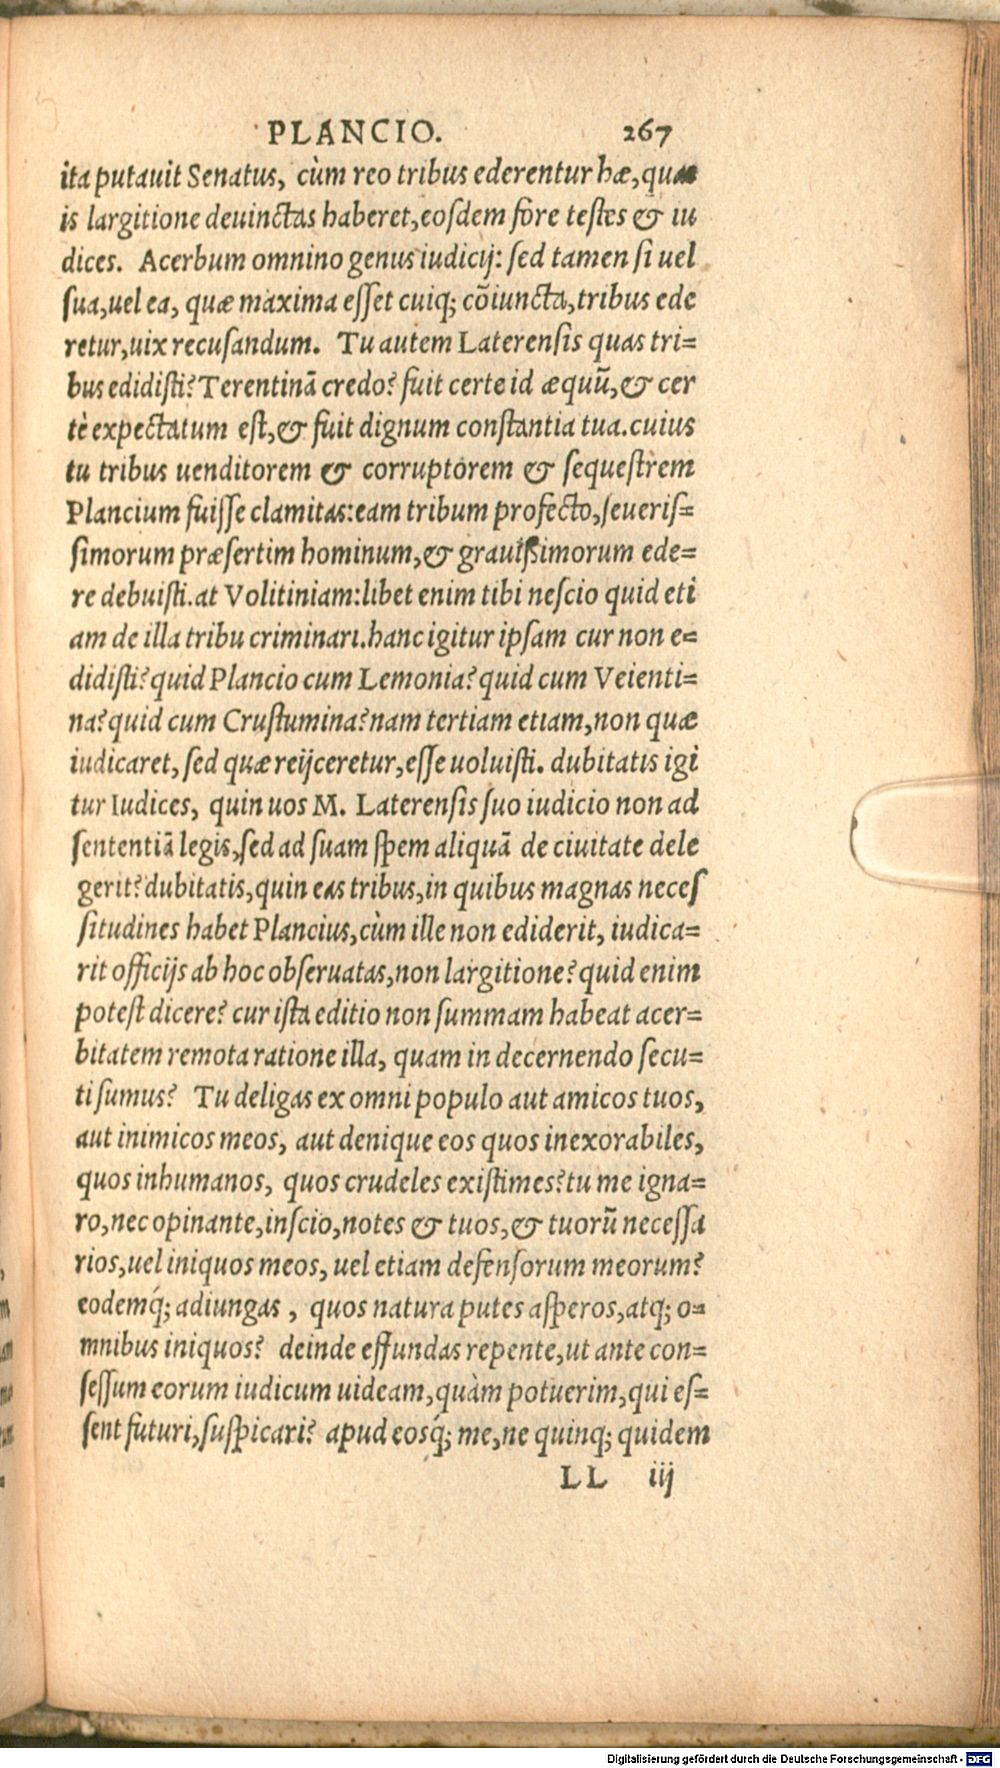 PLANCIO. 267
ita putauit Senatus, cùm reo tribus ederentur hæ, quas
is largitione deuinctas haberet, eosdem fore testes & iu
dices. Acerbum omnino genus iudicij: sed tamen si uel
sua, uel ea, quæ maxima esset cuiq; cōiuncta, tribus ede
retur, uix recusandum. Tu autem Laterensis quas tri=
bus edidisti? Terentinā credo? fuit certe id æquū, & cer
tè expectatum est, & fuit dignum constantia tua. cuius
tu tribus uenditorem & corruptorem & sequestrem
Plancium fuisse clamitas: eam tribum profecto, seueris=
simorum præsertim hominum, & grauissimorum ede=
re debuisti. at Volitiniam: libet enim tibi nescio quid eti
am de illa tribu criminari. hanc igitur ipsam cur non e=
didisti? quid Plancio cum Lemonia? quid cum Veienti=
na? quid cum Crustumina? nam tertiam etiam, non quæ
iudicaret, sed quæ reijceretur, esse uoluisti. dubitatis igi
tur Iudices, quin uos M. Laterensis suo iudicio non ad
sententiā legis, sed ad suam spem aliquā de ciuitate dele
gerit? dubitatis, quin eas tribus, in quibus magnas neces
situdines habet Plancius, cùm ille non ediderit, iudica=
rit officijs ab hoc obseruatas, non largitione? quid enim
potest dicere? cur ista editio non summam habeat acer=
bitatem remota ratione illa, quam in decernendo secu=
ti sumus? Tu deligas ex omni populo aut amicos tuos,
aut inimicos meos, aut denique eos quos inexorabiles,
quos inhumanos, quos crudeles existimes? tu me igna=
ro, nec opinante, inscio, notes & tuos, & tuorū necessa
rios, uel iniquos meos, uel etiam defensorum meorum?
eodemq́; adiungas, quos natura putes asperos, atq; o=
mnibus iniquos? deinde effundas repente, ut ante con=
sessum eorum iudicum uideam, quàm potuerim, qui es=
sent futuri, suspicari? apud eosq́; me, ne quinq; quidem
LL iij
Digitalisierung gefördert durch die Deutsche Forschungsgemeinschaft - DFG